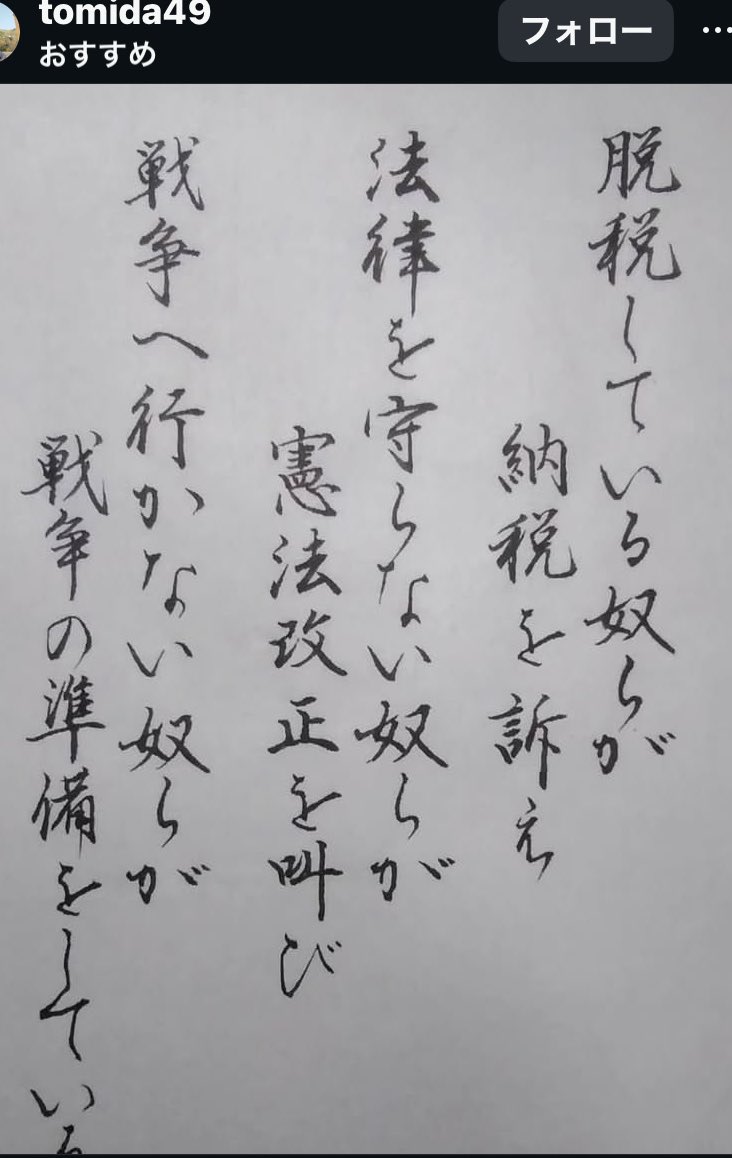 tomida49
おすすめ
フォロー
脱税している奴らが
納税を訴え
法律を守らない奴らが
憲法改正を叫び
戦争へ行かない奴らが
戦争の準備をしている